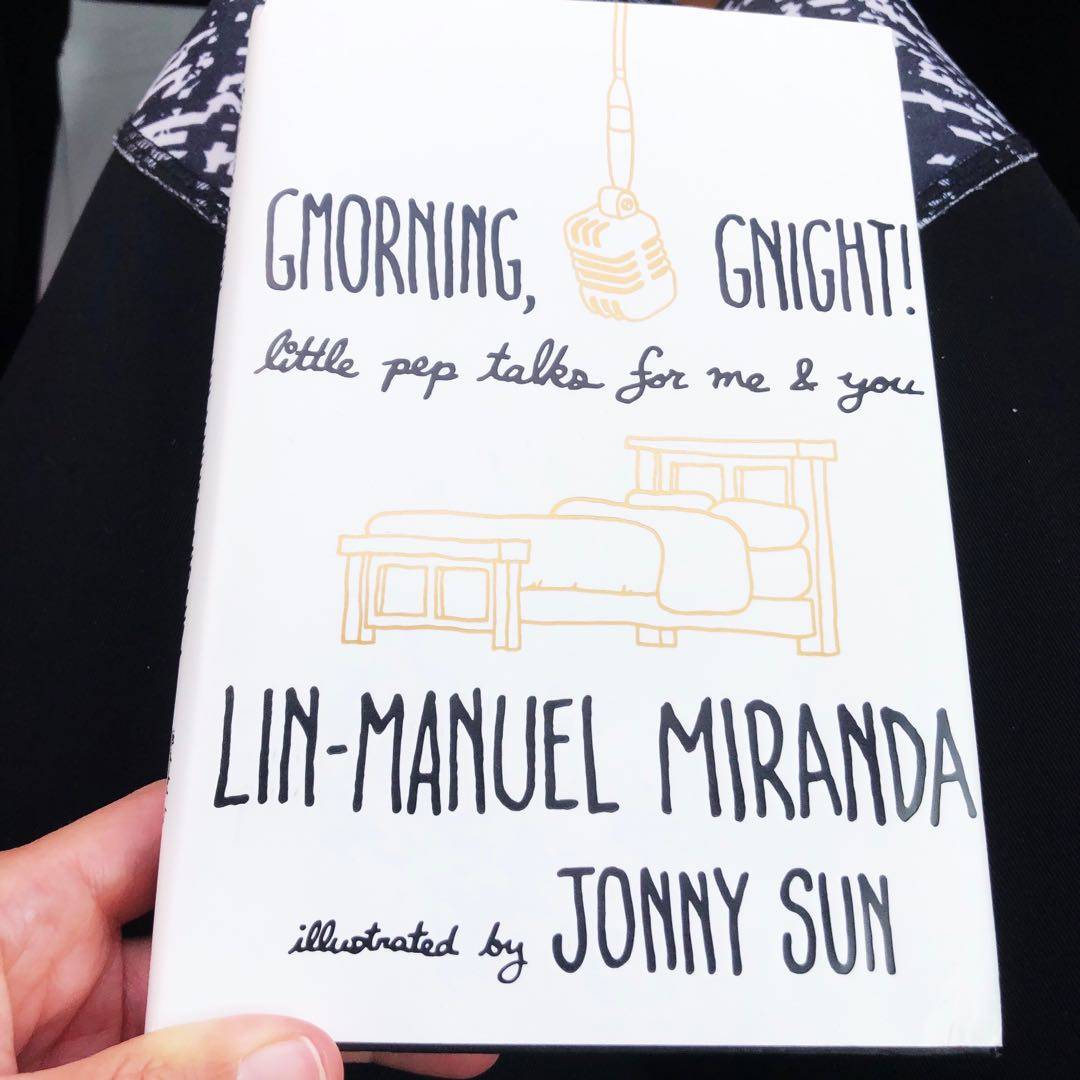 GMORNING, GNIGHT!
little pep talks for me & you
LIN-MANUEL MIRANDA
illustrated by JONNY SUN